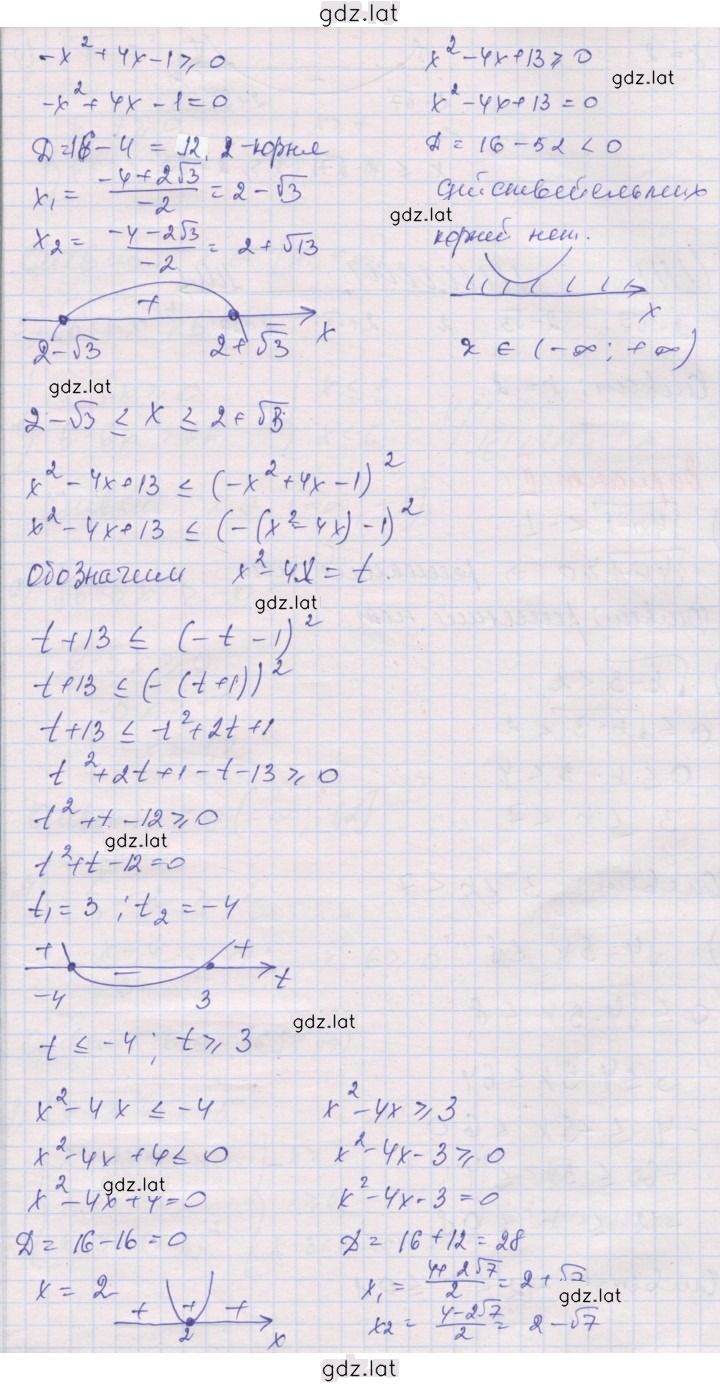 gdz.lat
-x² + 4x - 1 ⩾ 0
-x² + 4x - 1 = 0
D = 16 - 4 = 12, 2 - корня
x₁ = (-4 + 2√3)/(-2) = 2 - √3
x₂ = (-4 - 2√3)/(-2) = 2 + √13
+
2 - √3 2 + √3 x
gdz.lat
2 - √3 ≤ x ≤ 2 + √3
x² - 4x + 13 ⩾ 0
gdz.lat
x² - 4x + 13 = 0
D = 16 - 52 < 0
действительных
gdz.lat
корней нет.
x
x ∈ (-∞; +∞)
x² - 4x + 13 ≤ (-x² + 4x - 1)²
x² - 4x + 13 ≤ (-(x² - 4x) - 1)²
Обозначим x² - 4x = t.
gdz.lat
t + 13 ≤ (-t - 1)²
t + 13 ≤ (-(t + 1))²
t + 13 ≤ t² + 2t + 1
t² + 2t + 1 - t - 13 ⩾ 0
t² + t - 12 ⩾ 0
gdz.lat
t² + t - 12 = 0
t₁ = 3 ; t₂ = -4
+ - + t
-4 3
gdz.lat
t ≤ -4 ; t ⩾ 3
x² - 4x ≤ -4
x² - 4x + 4 ≤ 0
gdz.lat
x² - 4x + 4 = 0
D = 16 - 16 = 0
x = 2
+ + +
2 x
x² - 4x ⩾ 3
x² - 4x - 3 ⩾ 0
x² - 4x - 3 = 0
D = 16 + 12 = 28
x₁ = (4 + 2√7)/2 = 2 + √7
gdz.lat
x₂ = (4 - 2√7)/2 = 2 - √7
gdz.lat